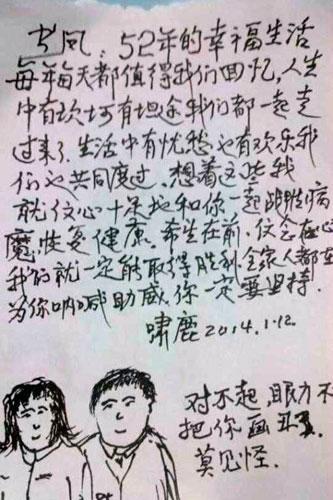 士凤:52年的幸福生活
每年每天都值得我们回忆,人生
中有坎坷有坦途我们都一起走
过来了.生活中有忧愁也有欢乐我
们也共同度过.想着这些我
就信心十足地和你一起战胜病
魔.恢复健康.希望在前.信念在心
我们就一定能取得胜利全家人都在
为你呐喊助威.你一定要坚持.
啸鹿2014.1.12.
对不起,眼力不
把你画丑了.
莫见怪.